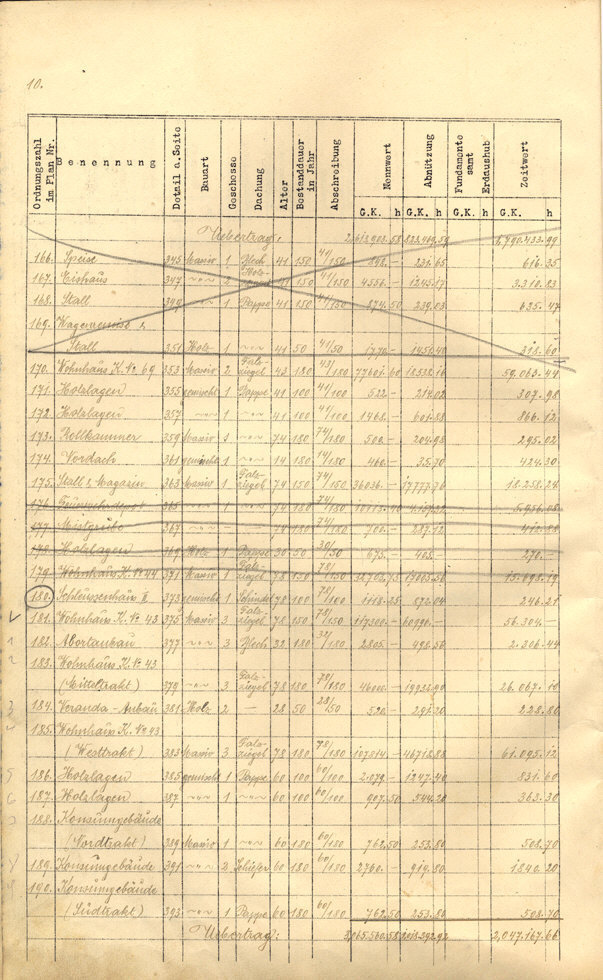 10.
Ordnungszahl im Plan Nr. Benennung Detail a.Seite Bauart Geschosse Dachung Alter Bestanddauer in Jahr Abschreibung Nennwert Abnützung Fundamente samt Erdaushub Zeitwert
G.K. h G.K. h G.K. h G.K. h
Uebertrag: 1,790.433.99
166. Speise 345 Massiv 1 Blech 41 150 41/150 848.— 231.65 616.35
167. Eishaus 347 " 2 41 150 41/150 4556.— 1245.17 3.310.83
168. Stall 349 " 1 Pappe 41 150 41/150 874.50 239.03 635.47
169. Wagenremise &
Stall 351 Holz 1 " 41 50 41/50 1770.— 1450.40 318.60
170. Wohnhaus K. No 69 353 Massiv 2 Falzziegel 43 180 43/180 77601.60 18538.16 59.063.44
171. Holzlagen 355 gemischt 1 Pappe 41 100 41/100 522.— 214.02 307.98
172. Holzlagen 357 " 1 " 41 100 41/100 1468.— 601.88 866.12
173. Rollkammer 359 Massiv 1 " 74 180 74/180 500.— 204.98 295.02
174. Vordach 361 gemischt 1 " 14 180 14/180 460.— 35.70 424.30
175. Stall & Magazin 363 Massiv 1 Falzziegel 74 150 74/150 36036.— 17777.76 18.258.24
176. Feuerwehrdepot 365 " 1 " 74 180 74/180
177. Mistgrube 367 " — — 74 180 74/180 700.— 287.12 412.88
178. Holzlagen 369 Holz 1 Pappe 30 50 30/50 675.— 405.— 270.—
179. Wohnhaus K. No 44 371 Massiv 1 Falzziegel 78 150 78/150 15.698.19
180. Schleusenhaus II 373 gemischt 1 Schindel 78 100 78/100 1118.25 872.04 246.21
181. Wohnhaus K. No 43 375 Massiv 3 Falzziegel 78 150 78/150 117300.— 60996.— 56.304.—
182. Abortanbau 377 " 3 Blech 32 180 32/180 2805.— 498.56 2.306.44
183. Wohnhaus K. No 43
(Mitteltrakt) 379 " 3 Falzziegel 78 180 78/180 46000.— 19932.90 26.067.10
184. Veranda-Anbau 381 Holz 2 — 28 50 28/50 520.— 291.20 228.80
185. Wohnhaus K. No 43
(Westtrakt) 383 Massiv 3 Falzziegel 78 180 78/180 107814.— 46718.88 61.095.12
186. Holzlagen 385 gemischt 1 Pappe 60 100 60/100 2.079.— 1247.40 831.60
187. Holzlagen 387 " 1 " 60 100 60/100 907.50 544.20 363.30
188. Konsumgebäude
(Nordtrakt) 389 Massiv 1 " 60 180 60/180 762.50 253.80 508.70
189. Konsumgebäude 391 " 2 Schiefer 60 180 60/180 2760.— 919.80 1840.20
190. Konsumgebäude
(Südtrakt) 393 " 1 Pappe 60 180 60/180 762.50 253.80 508.70
Uebertrag: 2,047.167.66